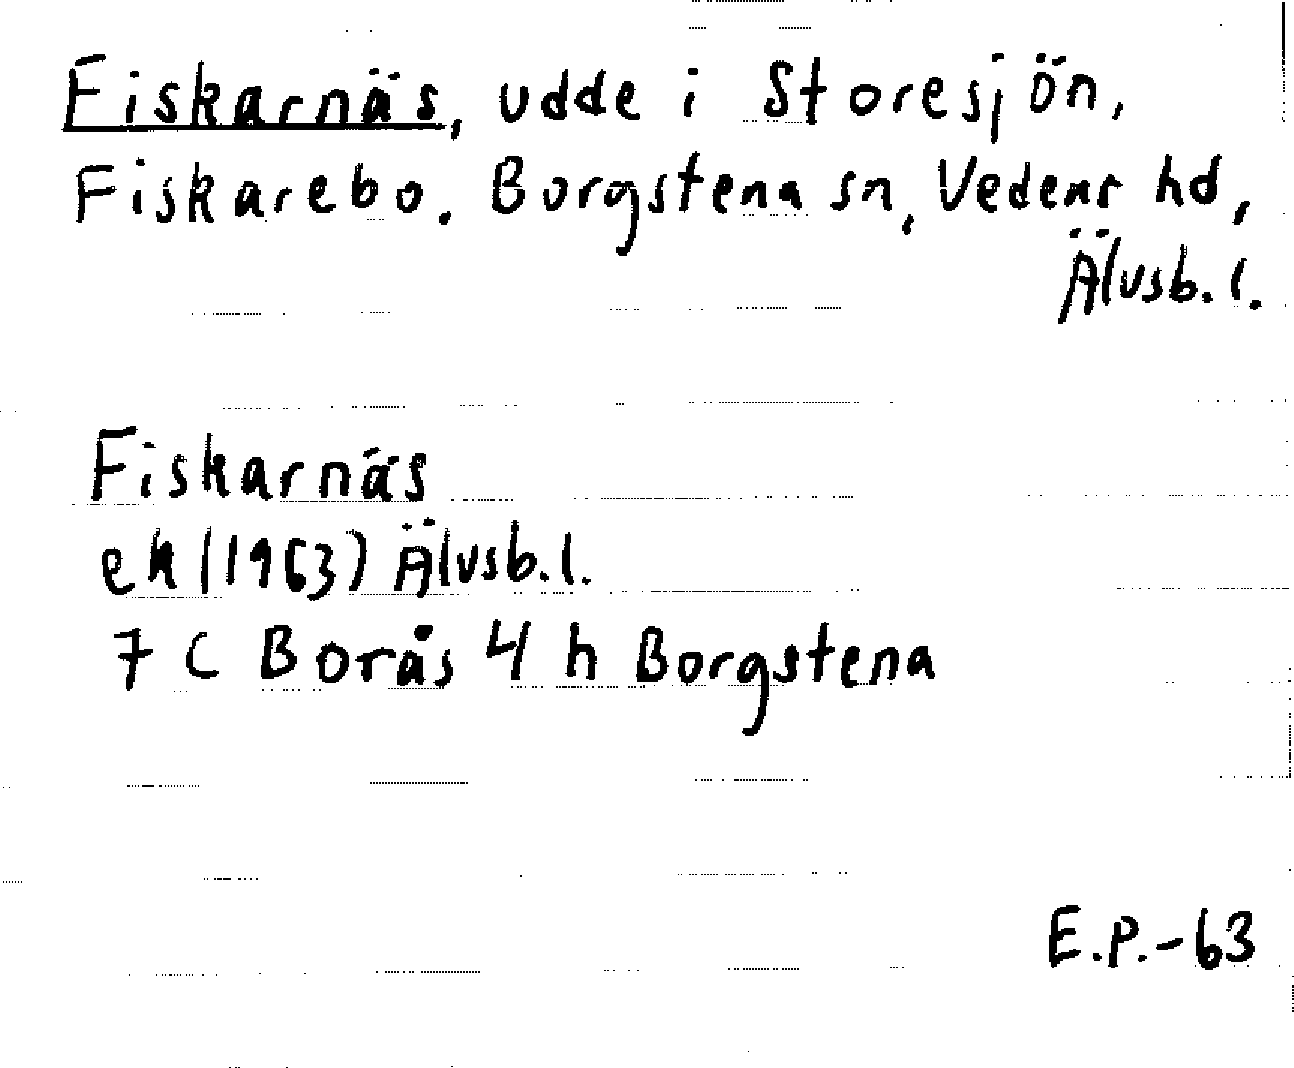 Fiskarnäs, udde i Storesjön,
Fiskarebo. Borgstena sn, Vedens hd,
Älvsb. l.
Fiskarnäs
ek (1963) Älvsb. l.
7 C Borås 4 h Borgstena
E.P.-63